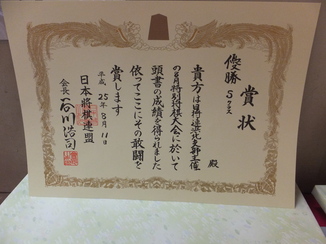 賞状
優勝
Sクラス
殿
貴方は
の8月特別将棋大会に於いて
頭書の成績を得られました
依ってここにその敢闘を
賞します
平成25年8月11日
日本将棋連盟
会長 谷川浩司